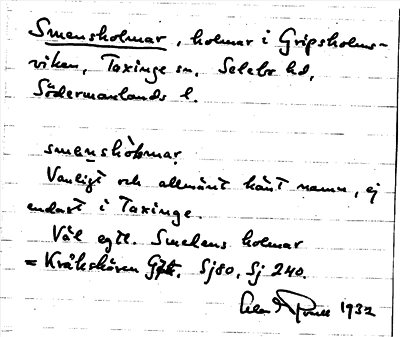 Smensholmar, holmar i Gripsholms-
viken, Taxinge sn, Selebo hd,
Södermanlands l.
smenshòlmar
Vanligt och allmänt känt namn, ej
endast i Taxinge.
Väl egtl. Smedens holmar
= Kråkskären Gsk. Sj80, Sj 240.
1932